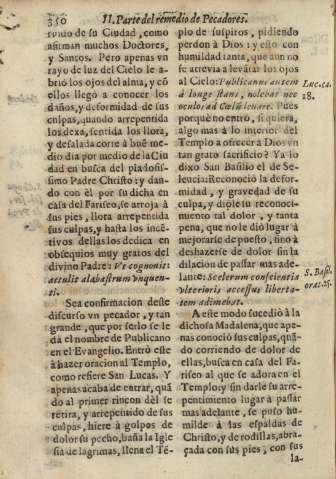 350 II. Parte del remedio de Pecadores.
rundo de su Ciudad, como
afirman muchos Doctores,
y Santos. Pero apenas vn
rayo de luz del Cielo le a-
briò los ojos del alma, y cõ
ellos llegò a conocer los
daños, y deformidad de sus
culpas, quando arrepentida
los dexa, sentida los llora,
y desalada corre à buẽ me-
dio dia por medio de la Ciu
dad en busca del piadosis-
simo Padre Christo: y dan-
do con èl por su dicha en
casa del Fariseo, se arroja à
sus pies, llora arrepentida
sus culpas, y hasta los incẽ-
tivos dellas los dedica en
obsequios muy gratos del
divino Padre: Vt cognouit:
attulit alabastrum vnguen-
ti.
Sea confirmacion deste
discurso vn pecador, y tan
grande, que por serlo se le
dà el nombre de Publicano
en el Evangelio. Entrò este
à hazer oracion al Templo,
como refiere San Lucas. Y
apenas acaba de entrar, quã
do al primer rincon dèl se
retira, y arrepentido de sus
culpas, hiere à golpes de
dolor su pecho, baña la Igle
sia de lagrimas, llena el Tẽ-
plo de suspiros, pidiendo
perdon à Dios: y esto con
humildad tanta, que aun no
se atrevia a levãtar los ojos
al Cielo: Publicanus autem
à longe stans, nolebat nec
oculos ad Cœlũ leuare. Pues
porquè no entrò, si quiera,
algo mas à lo interior del
Templo a ofrecer a Dios vn
tan grato sacrificio? Ya lo
dixo San Basilio el de Se-
lencia: Reconociò la defor-
midad, y gravedad de su
culpa, y diòle su reconoci-
miento tal dolor, y tanta
pena, que no le diò lugar à
mejorarse de puesto, sino à
deshazerse de dolor sin la
dilacion de passar mas ade-
lante: Scelerum conscientia
vlterioris accessus liberta-
tem adimebat.
A este modo sucediò à la
dichosa Madalena, que ape-
nas conociò sus culpas, quã-
do corriendo de dolor de
ellas, busca en casa del Fa-
riseo al que se adora en el
Templo: y sin darle su arre-
pentimiento lugar a passar
mas adelante, se puso hu-
milde à las espaldas de
Christo, y de rodillas, abra-
çada con sus pies, con sus
la-
Luc. ca.
18.
S. Basil.
orat. 25.